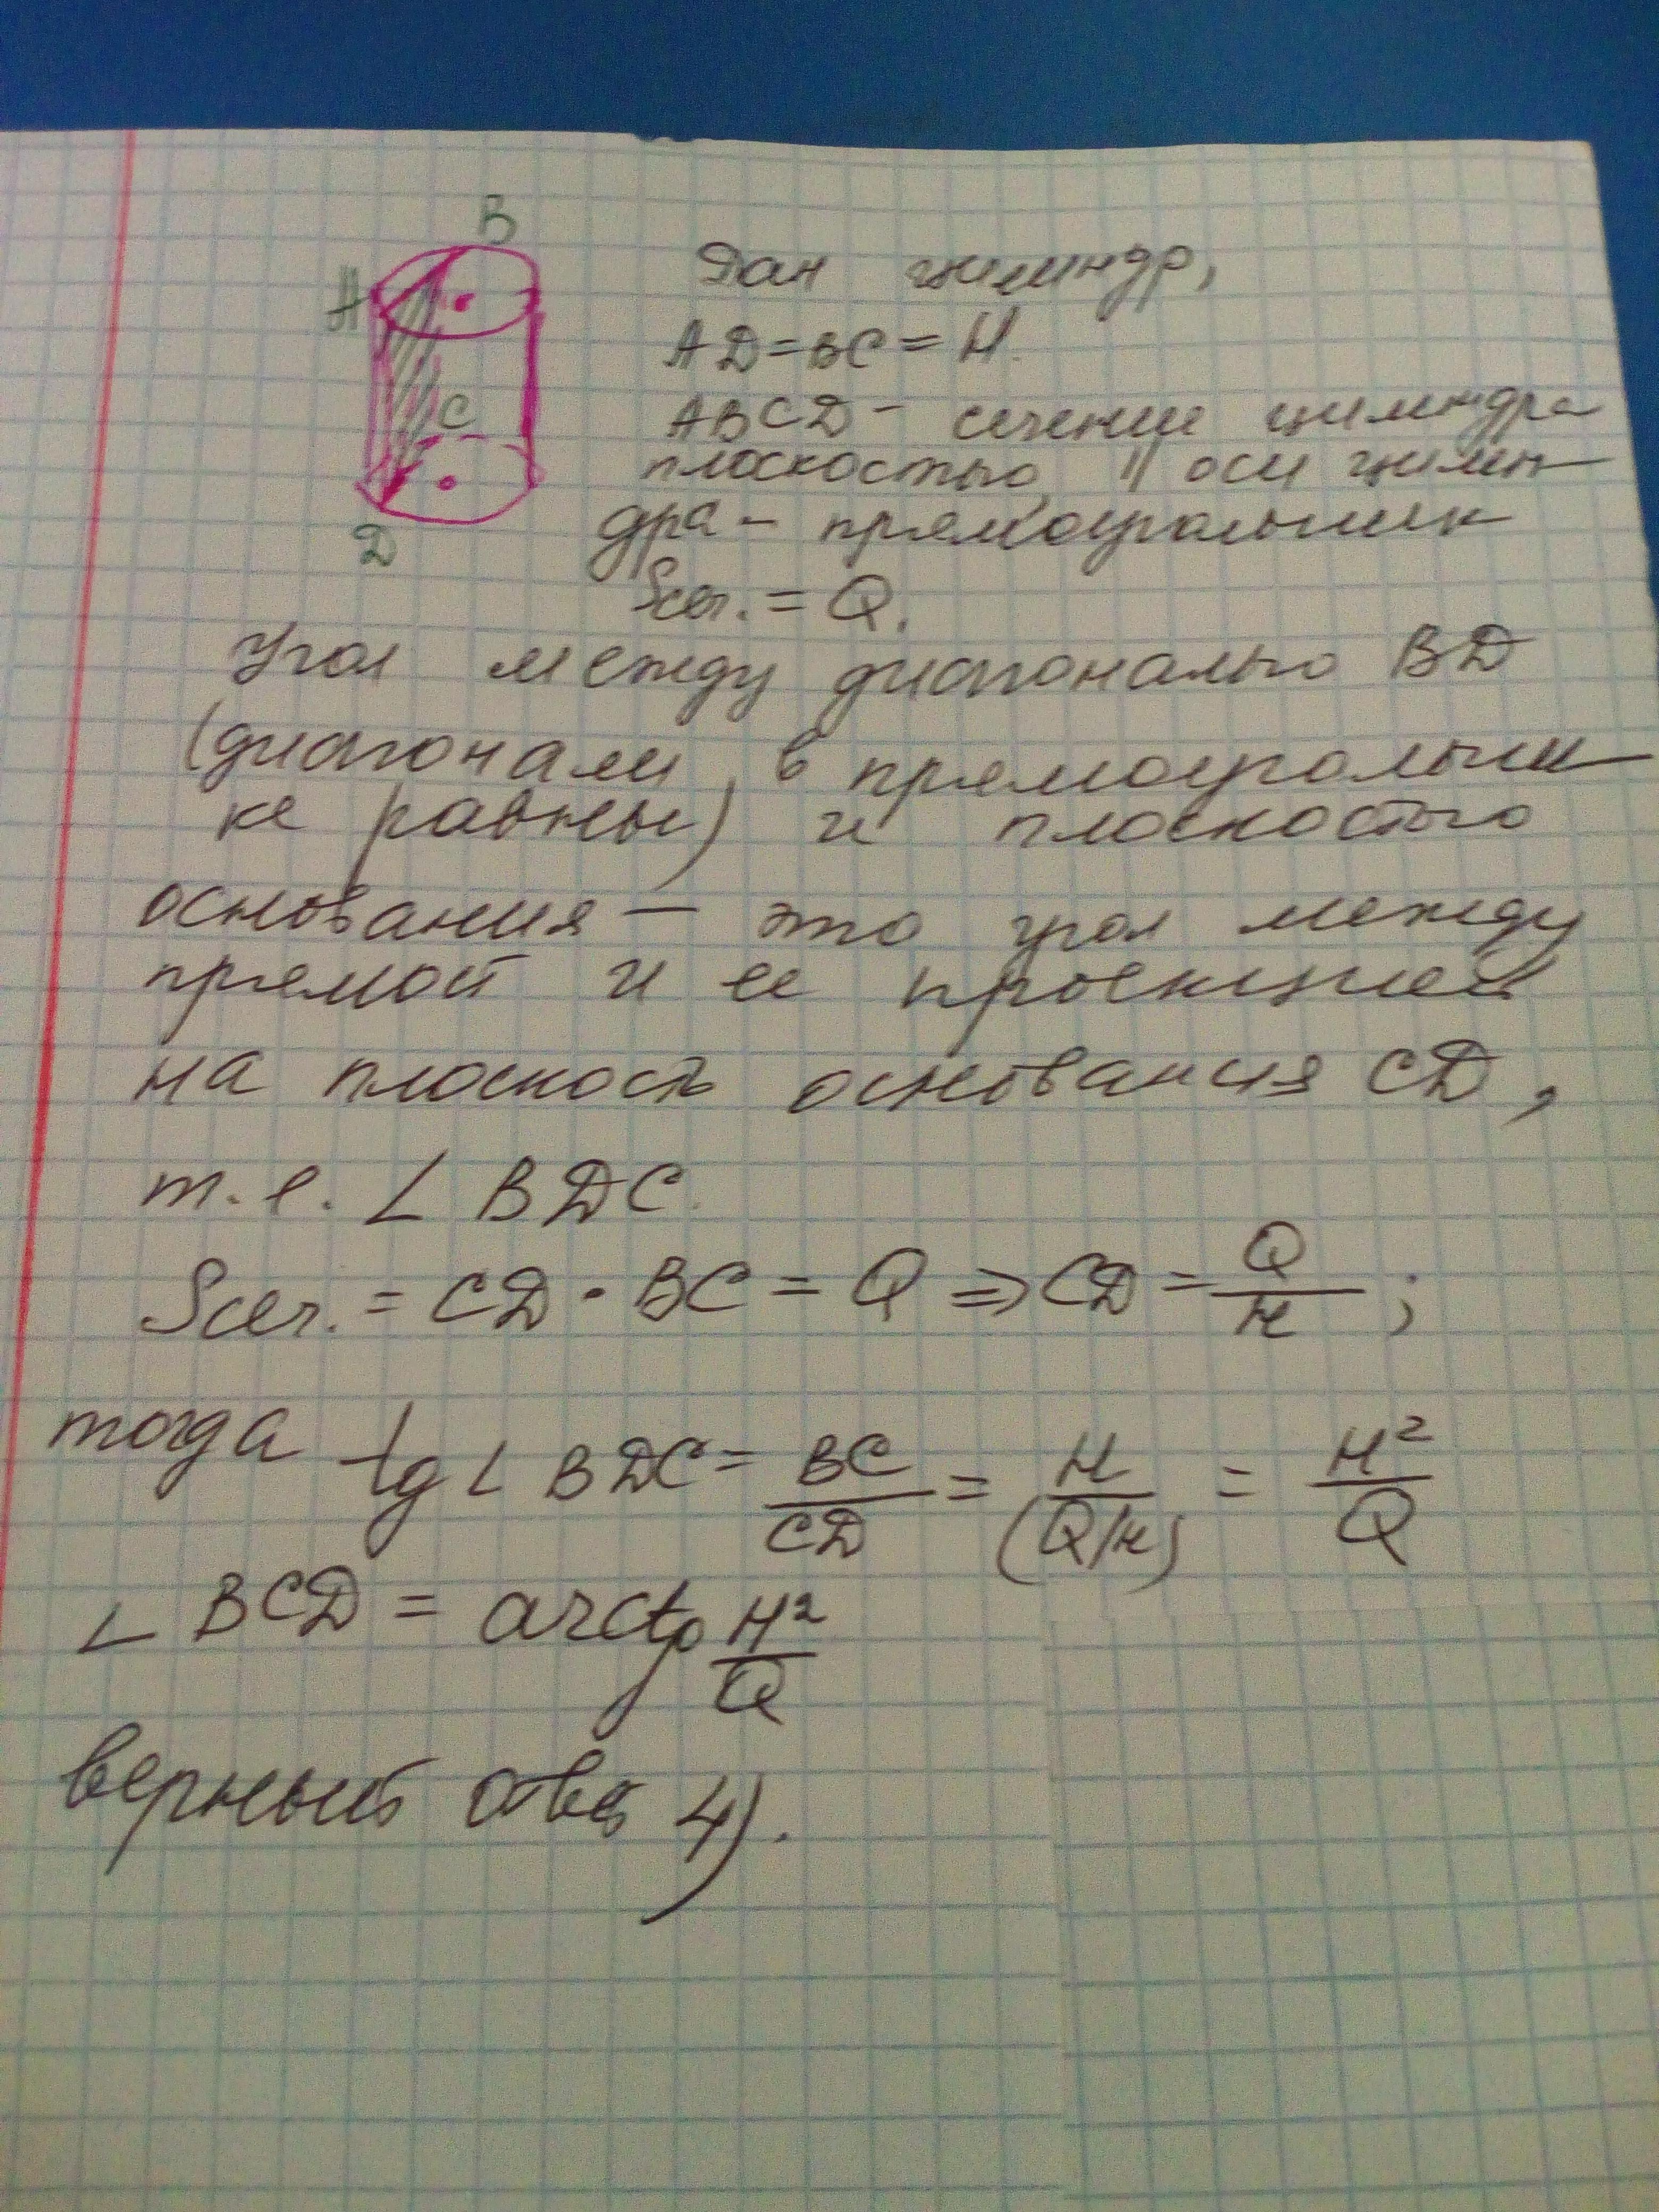 B
A
C
D
Дан цилиндр,
AD=BC=H.
ABCD - сечение цилиндра
плоскостью, || оси цилин-
дра - прямоугольник
Sсеч. = Q.
Угол между диагональю BD
(диагонали в прямоугольни-
ке равны) и плоскостью
основания — это угол между
прямой и ее проекцией
на плоскость основания CD,
т.е. ∠ BDC.
Sсеч. = CD · BC = Q ⇒ CD = Q/H ;
тогда tg ∠ BDC = BC/CD = H/(Q/H) = H²/Q
∠ BCD = arctg H²/Q
верный ответ 4).